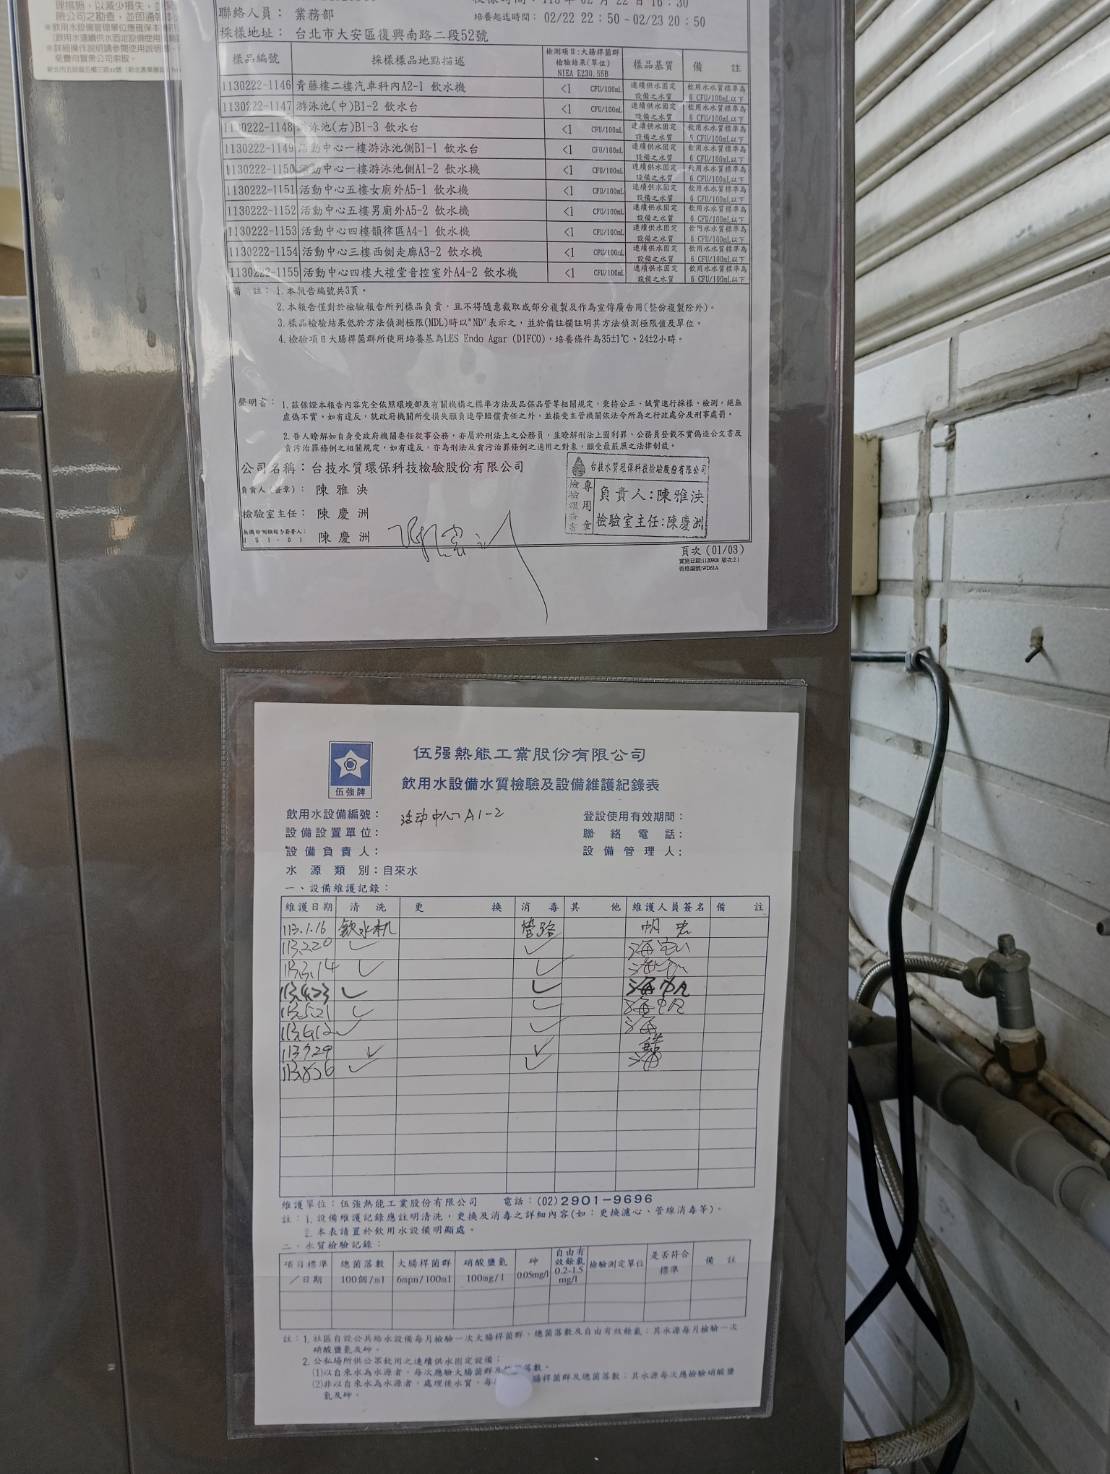 聯絡人員： 業務部
培養起迄時間： 02/22 22：50 - 02/23 20：50
採樣地址： 台北市大安區復興南路二段52號
樣品編號 採樣樣品地點描述 檢測項目:大腸桿菌群 檢驗結果(單位) NIEA E230.55B 樣品基質 備 註
1130222-1146 青藤樓二樓汽車科內A2-1 飲水機 <1 CFU/100mL 連續供水固定設備之水質 飲用水水質標準為 6 CFU/100mL以下
1130222-1147 游泳池(中)B1-2 飲水台 <1 CFU/100mL 連續供水固定設備之水質 飲用水水質標準為 6 CFU/100mL以下
1130222-1148 泳池(右)B1-3 飲水台 <1 CFU/100mL 連續供水固定設備之水質 飲用水水質標準為 6 CFU/100mL以下
1130222-1149 動中心一樓游泳池側B1-1 飲水台 <1 CFU/100mL 連續供水固定設備之水質 飲用水水質標準為 6 CFU/100mL以下
1130222-1150 動中心一樓游泳池側A1-2 飲水機 <1 CFU/100mL 連續供水固定設備之水質 飲用水水質標準為 6 CFU/100mL以下
1130222-1151 活動中心五樓女廁外A5-1 飲水機 <1 CFU/100mL 連續供水固定設備之水質 飲用水水質標準為 6 CFU/100mL以下
1130222-1152 活動中心五樓男廁外A5-2 飲水機 <1 CFU/100mL 連續供水固定設備之水質 飲用水水質標準為 6 CFU/100mL以下
1130222-1153 活動中心四樓韻律區A4-1 飲水機 <1 CFU/100mL 連續供水固定設備之水質 飲用水水質標準為 6 CFU/100mL以下
1130222-1154 活動中心三樓西側走廊A3-2 飲水機 <1 CFU/100mL 連續供水固定設備之水質 飲用水水質標準為 6 CFU/100mL以下
1130222-1155 活動中心四樓大禮堂音控室外A4-2 飲水機 <1 CFU/100mL 連續供水固定設備之水質 飲用水水質標準為 6 CFU/100mL以下
備 註：1.本報告編號共3頁。
2.本報告僅對於檢驗報告所列樣品負責，且不得隨意截取或部分複製及作為宣傳廣告用(整份複製除外)。
3.樣品檢驗結果低於方法偵測極限(MDL)時以"ND"表示之，並於備註欄註明其方法偵測極限值及單位。
4.檢驗項目大腸桿菌群所使用培養基為LES Endo Agar (DIFCO)，培養條件為35±1℃、24±2小時。
聲明書：1.茲保證本報告內容完全依照環境部及有關機構之標準方法及品保品管等相關規定，秉持公正、誠實進行採樣、檢測。絕無
虛偽不實，如有違反，就政府機關所受損失願負連帶賠償責任之外，並接受主管機關依法令所為之行政處分及刑事處罰。
2.吾人瞭解如自身受政府機關委任從事公務，亦屬於刑法上之公務員，並瞭解刑法上圖利罪、公務員登載不實偽造公文書及
貪污治罪條例之相關規定，如有違反，亦為刑法及貪污治罪條例之適用之對象，願受最嚴厲之法律制裁。
公司名稱：台技水質環保科技檢驗股份有限公司
負責人(簽章)： 陳雅泱
檢驗室主任： 陳慶洲
陳慶洲
台技水質環保科技檢驗股份有限公司
負責人:陳雅泱
檢驗室主任:陳慶洲
頁次 (01/03)
伍强熱能工業股份有限公司
伍強牌
飲用水設備水質檢驗及設備維護紀錄表
飲用水設備編號： 活动中心A1-2 登設使用有效期間：
設備設置單位： 聯 絡 電 話：
設備負責人： 設備管理人：
水 源 類 別：自來水
一、設備維護記錄：
維護日期 清 洗 更 換 消 毒 其 他 維護人員簽名 備 註
113.1.16 飲水机 管路
113.2.20 ✓ ✓
113.3.14 ✓ ✓
113.4.23 ✓ ✓
113.5.21 ✓ ✓
113.6.12 ✓ ✓
113.7.29 ✓ ✓
113.8.26 ✓ ✓
維護單位：伍强熱能工業股份有限公司 電話：(02)2901-9696
註：1.設備維護記錄應註明清洗，更換及消毒之詳細內容(如：更換濾心、管線消毒等)。
2.本表請置於飲用水設備明顯處。
二、水質檢驗記錄：
項目標準／日期 總菌落數 100個/ml 大腸桿菌群 6mpn/100ml 硝酸鹽氮 100mg/l 砷 0.05mg/l 自由有效餘氯 0.2-1.5 mg/l 檢驗測定單位 是否符合標準 備 註
註：1.社區自設公共給水設備每月檢驗一次大腸桿菌群、總菌落數及自由有效餘氯；其水源每月檢驗一次
硝酸鹽氮及砷。
2.公私場所供公眾飲用之連續供水固定設備：
(1)以自來水為水源者，每次應驗大腸桿菌群及 落數。
(2)非以自來水為水源者，處理後水質，每 腸桿菌群及總菌落數；其水源每次應檢驗硝酸鹽
氮及砷。